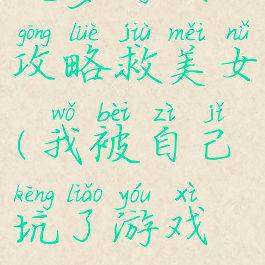 gōng lüè jiù měi nǚ
攻略救美女
wǒ bèi zì jǐ
(我被自己
kēng liǎo yóu xì
坑了游戏